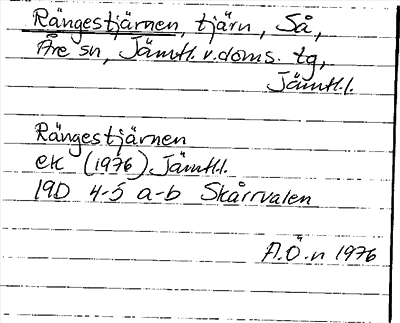 Rängestjärnen, tjärn, Så,
Åre sn, Jämtl. v. doms. tg,
Jämtl.l.
Rängestjärnen
ek (1976) Jämtl.l.
19D 4-5 a-b Skårrvalen
A.Ö-n 1976